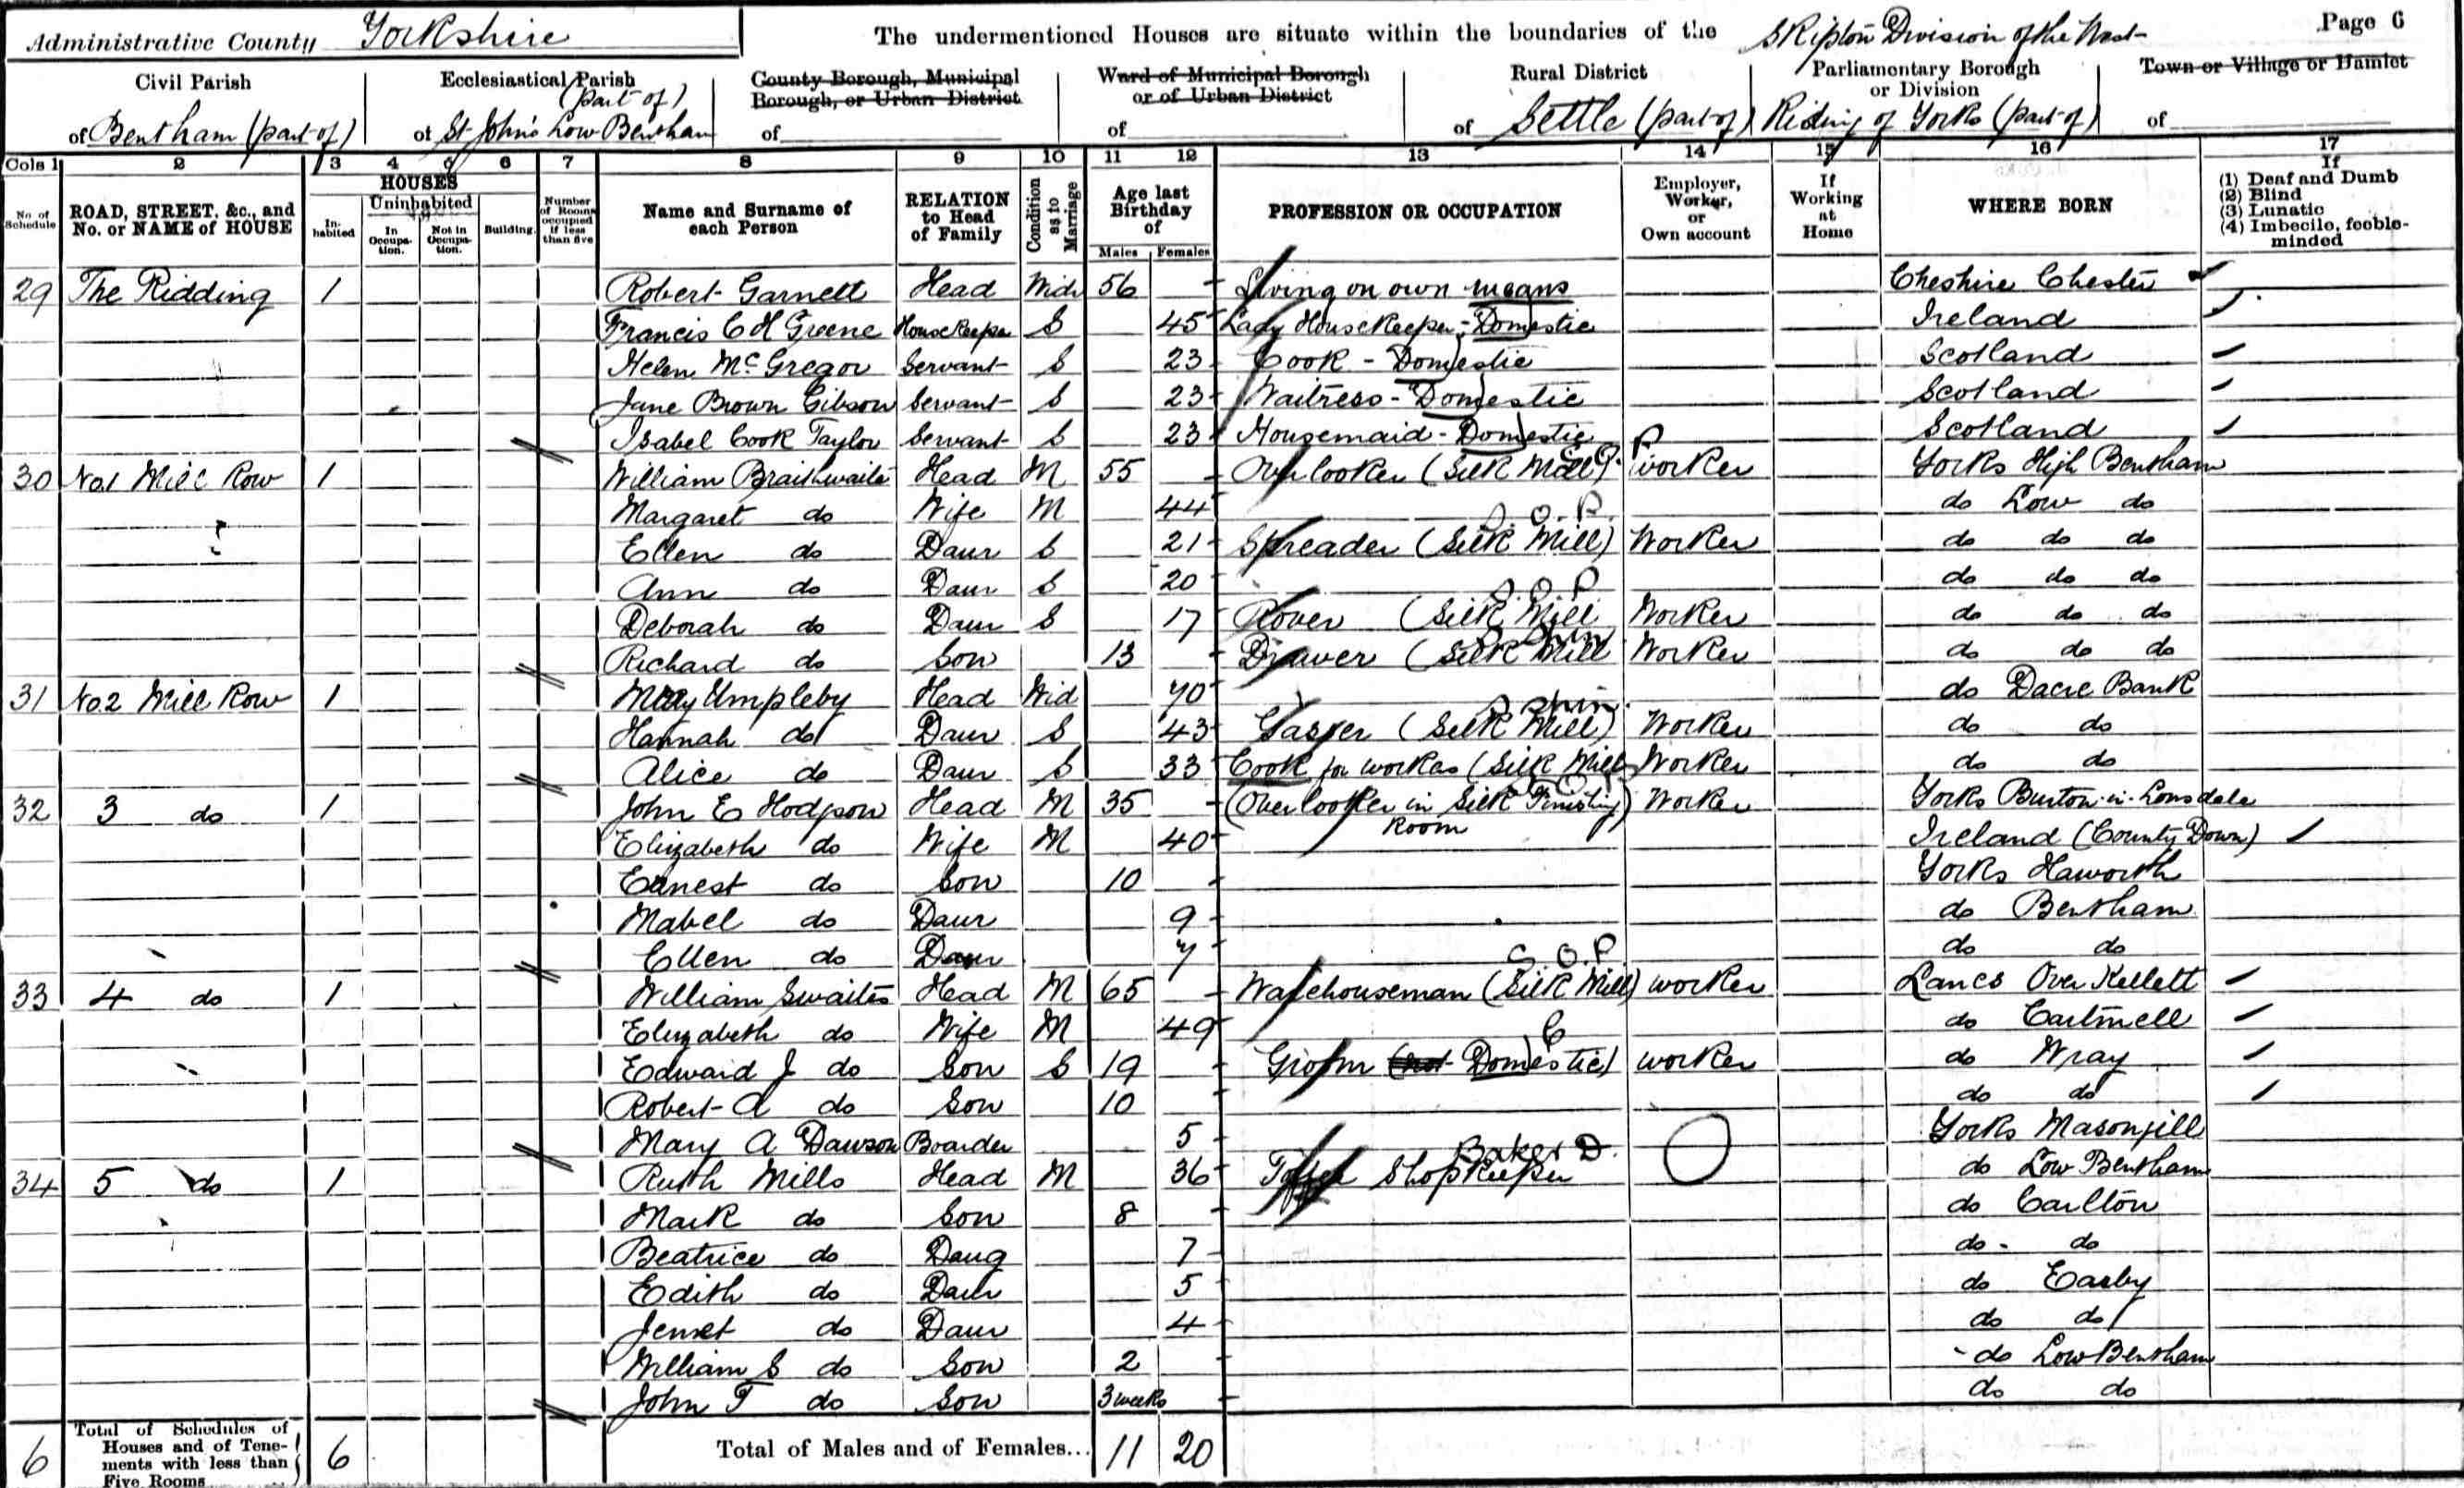 Administrative County Yorkshire The undermentioned Houses are situate within the boundaries of the Skipton Division of the West Page 6
Civil Parish Ecclesiastical Parish County Borough, Municipal Borough, or Urban District Ward of Municipal Borough or of Urban District Rural District Parliamentary Borough or Division Town or Village or Hamlet
of Bentham (part of) of St John's Low Bentham (part of) of of of Settle (part of) Riding of Yorks (part of) of
Cols 1 2 3 4 5 6 7 8 9 10 11 12 13 14 15 16 17
No. of Schedule ROAD, STREET, &c., and No. or NAME of HOUSE HOUSES Inhabited Uninhabited In Occupation. Not in Occupation. Building. Number of Rooms occupied if less than five Name and Surname of each Person RELATION to Head of Family Condition as to Marriage Age last Birthday of Males Females PROFESSION OR OCCUPATION Employer, Worker, or Own account If Working at Home WHERE BORN If (1) Deaf and Dumb (2) Blind (3) Lunatic (4) Imbecile, feeble-minded
29 The Ridding 1 Robert Garnett Head Widr 56 Living on own means Cheshire Chester
Francis C H Greene Housekeeper S 45 Lady Housekeeper - Domestic Ireland
Helen McGregor Servant S 23 Cook - Domestic Scotland
Jane Brown Gibson Servant S 23 Waitress - Domestic Scotland
Isabel Cook Taylor Servant S 23 Housemaid - Domestic Scotland
30 No.1 Mill Row 1 William Braithwaite Head M 55 Overlooker (Silk Mill) S.O.P. worker Yorks High Bentham
Margaret do Wife M 44 do Low do
Ellen do Daur S 21 Spreader (Silk Mill) S.O.P. Worker do do do
Ann do Daur S 20 do do do
Deborah do Daur S 17 Rover (Silk Mill S.O.P Worker do do do
Richard do Son 13 Drawer (Silk Mill S Spin Worker do do do
31 No.2 Mill Row 1 Mary Umpleby Head Wid 70 do Dacre Bank
Hannah do Daur S 43 Gasser (Silk Mill) S Spin. Worker do do
Alice do Daur S 33 Cook for workers (Silk Mill Worker do do
32 3 do 1 John E Hodgson Head M 35 (Overlooker in Silk Finishing) Room Worker Yorks Burton-in-Lonsdale
Elizabeth do Wife M 40 Ireland (County Down)
Ernest do Son 10 Yorks Haworth
Mabel do Daur 9 do Bentham
Ellen do Daur 7 do do
33 4 do 1 William Swaites Head M 65 Warehouseman (Silk Mill) S.O.P. worker Lancs Over Kellett
Elizabeth do Wife M 49 do Cartmell
Edward J do Son S 19 Groom (not Domestic) C worker do Wray
Robert A do Son 10 do do
Mary A Dawson Boarder 5 Yorks Masongill
34 5 do 1 Ruth Mills Head M 36 Shopkeeper Baker D. O do Low Bentham
Mark do Son 8 do Carlton
Beatrice do Daug 7 do do
Edith do Daur 5 do Earby
Jennet do Daur 4 do do
William S do Son 2 do Low Bentham
John T do Son 3 weeks do do
6 Total of Schedules of Houses and of Tenements with less than Five Rooms 6 Total of Males and of Females... 11 20